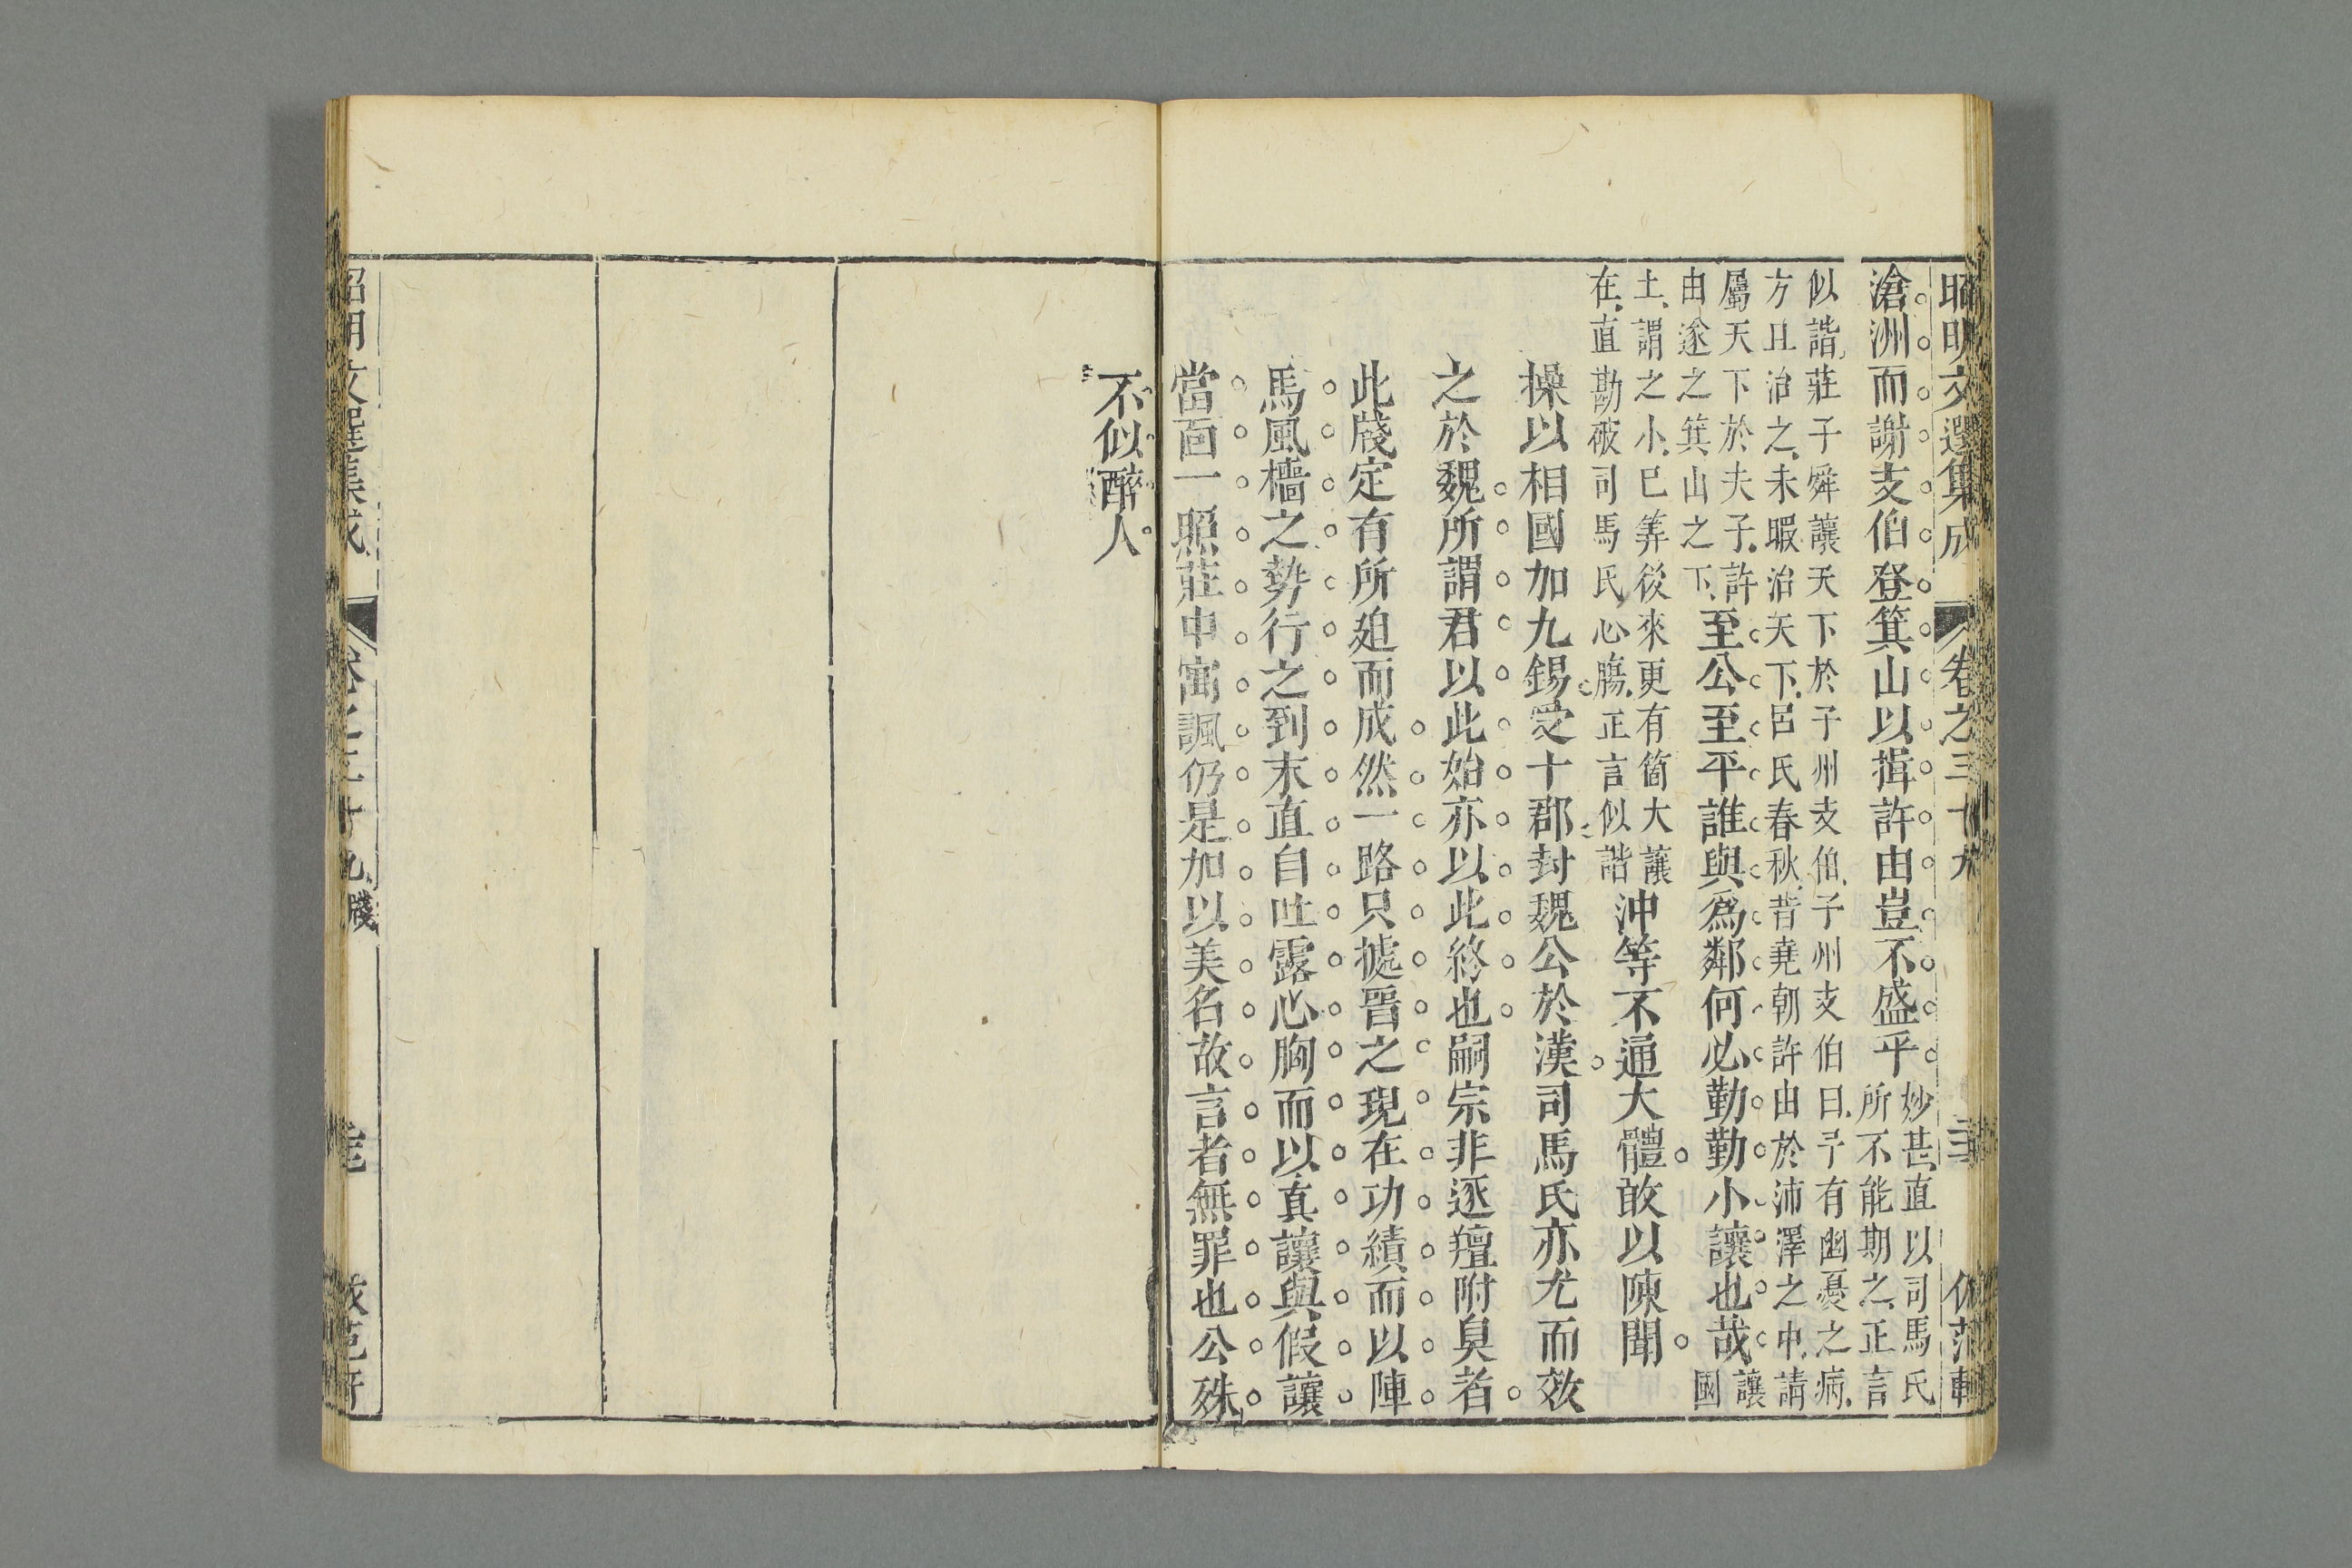 昭明文選集成 卷之三十九
滄洲而謝支伯登箕山以揖許由豈不盛乎妙甚直以司馬氏
所不能期之正言
似諧莊子舜讓天下於子州支伯子州支伯曰予有幽憂之病
方且治之未暇治天下呂氏春秋昔堯朝許由於沛澤之中請
屬天下於夫子許
由遂之箕山之下至公至平誰與為鄰何必勤勤小讓也哉讓
國
土謂之小已筭後來更有箇大讓
在直勘破司馬氏心膓正言似諧沖等不通大體敢以陳聞
操以相國加九錫受十郡封魏公於漢司馬氏亦尤而效
之於魏所謂君以此始亦以此終也嗣宗非逐羶附臭者
此牋定有所廹而成然一路只㨿晋之現在功績而以陣
馬風檣之勢行之到末直自吐露心胸而以真讓與假讓
當面一照莊中寓諷仍是加以美名故言者無罪也公殊
不似醉人
昭明文選集成 卷之三十九牋